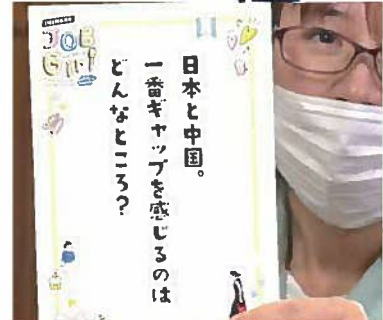 JOB
Girl
日本と中国。
一番ギャップを感じるのは
どんなところ？